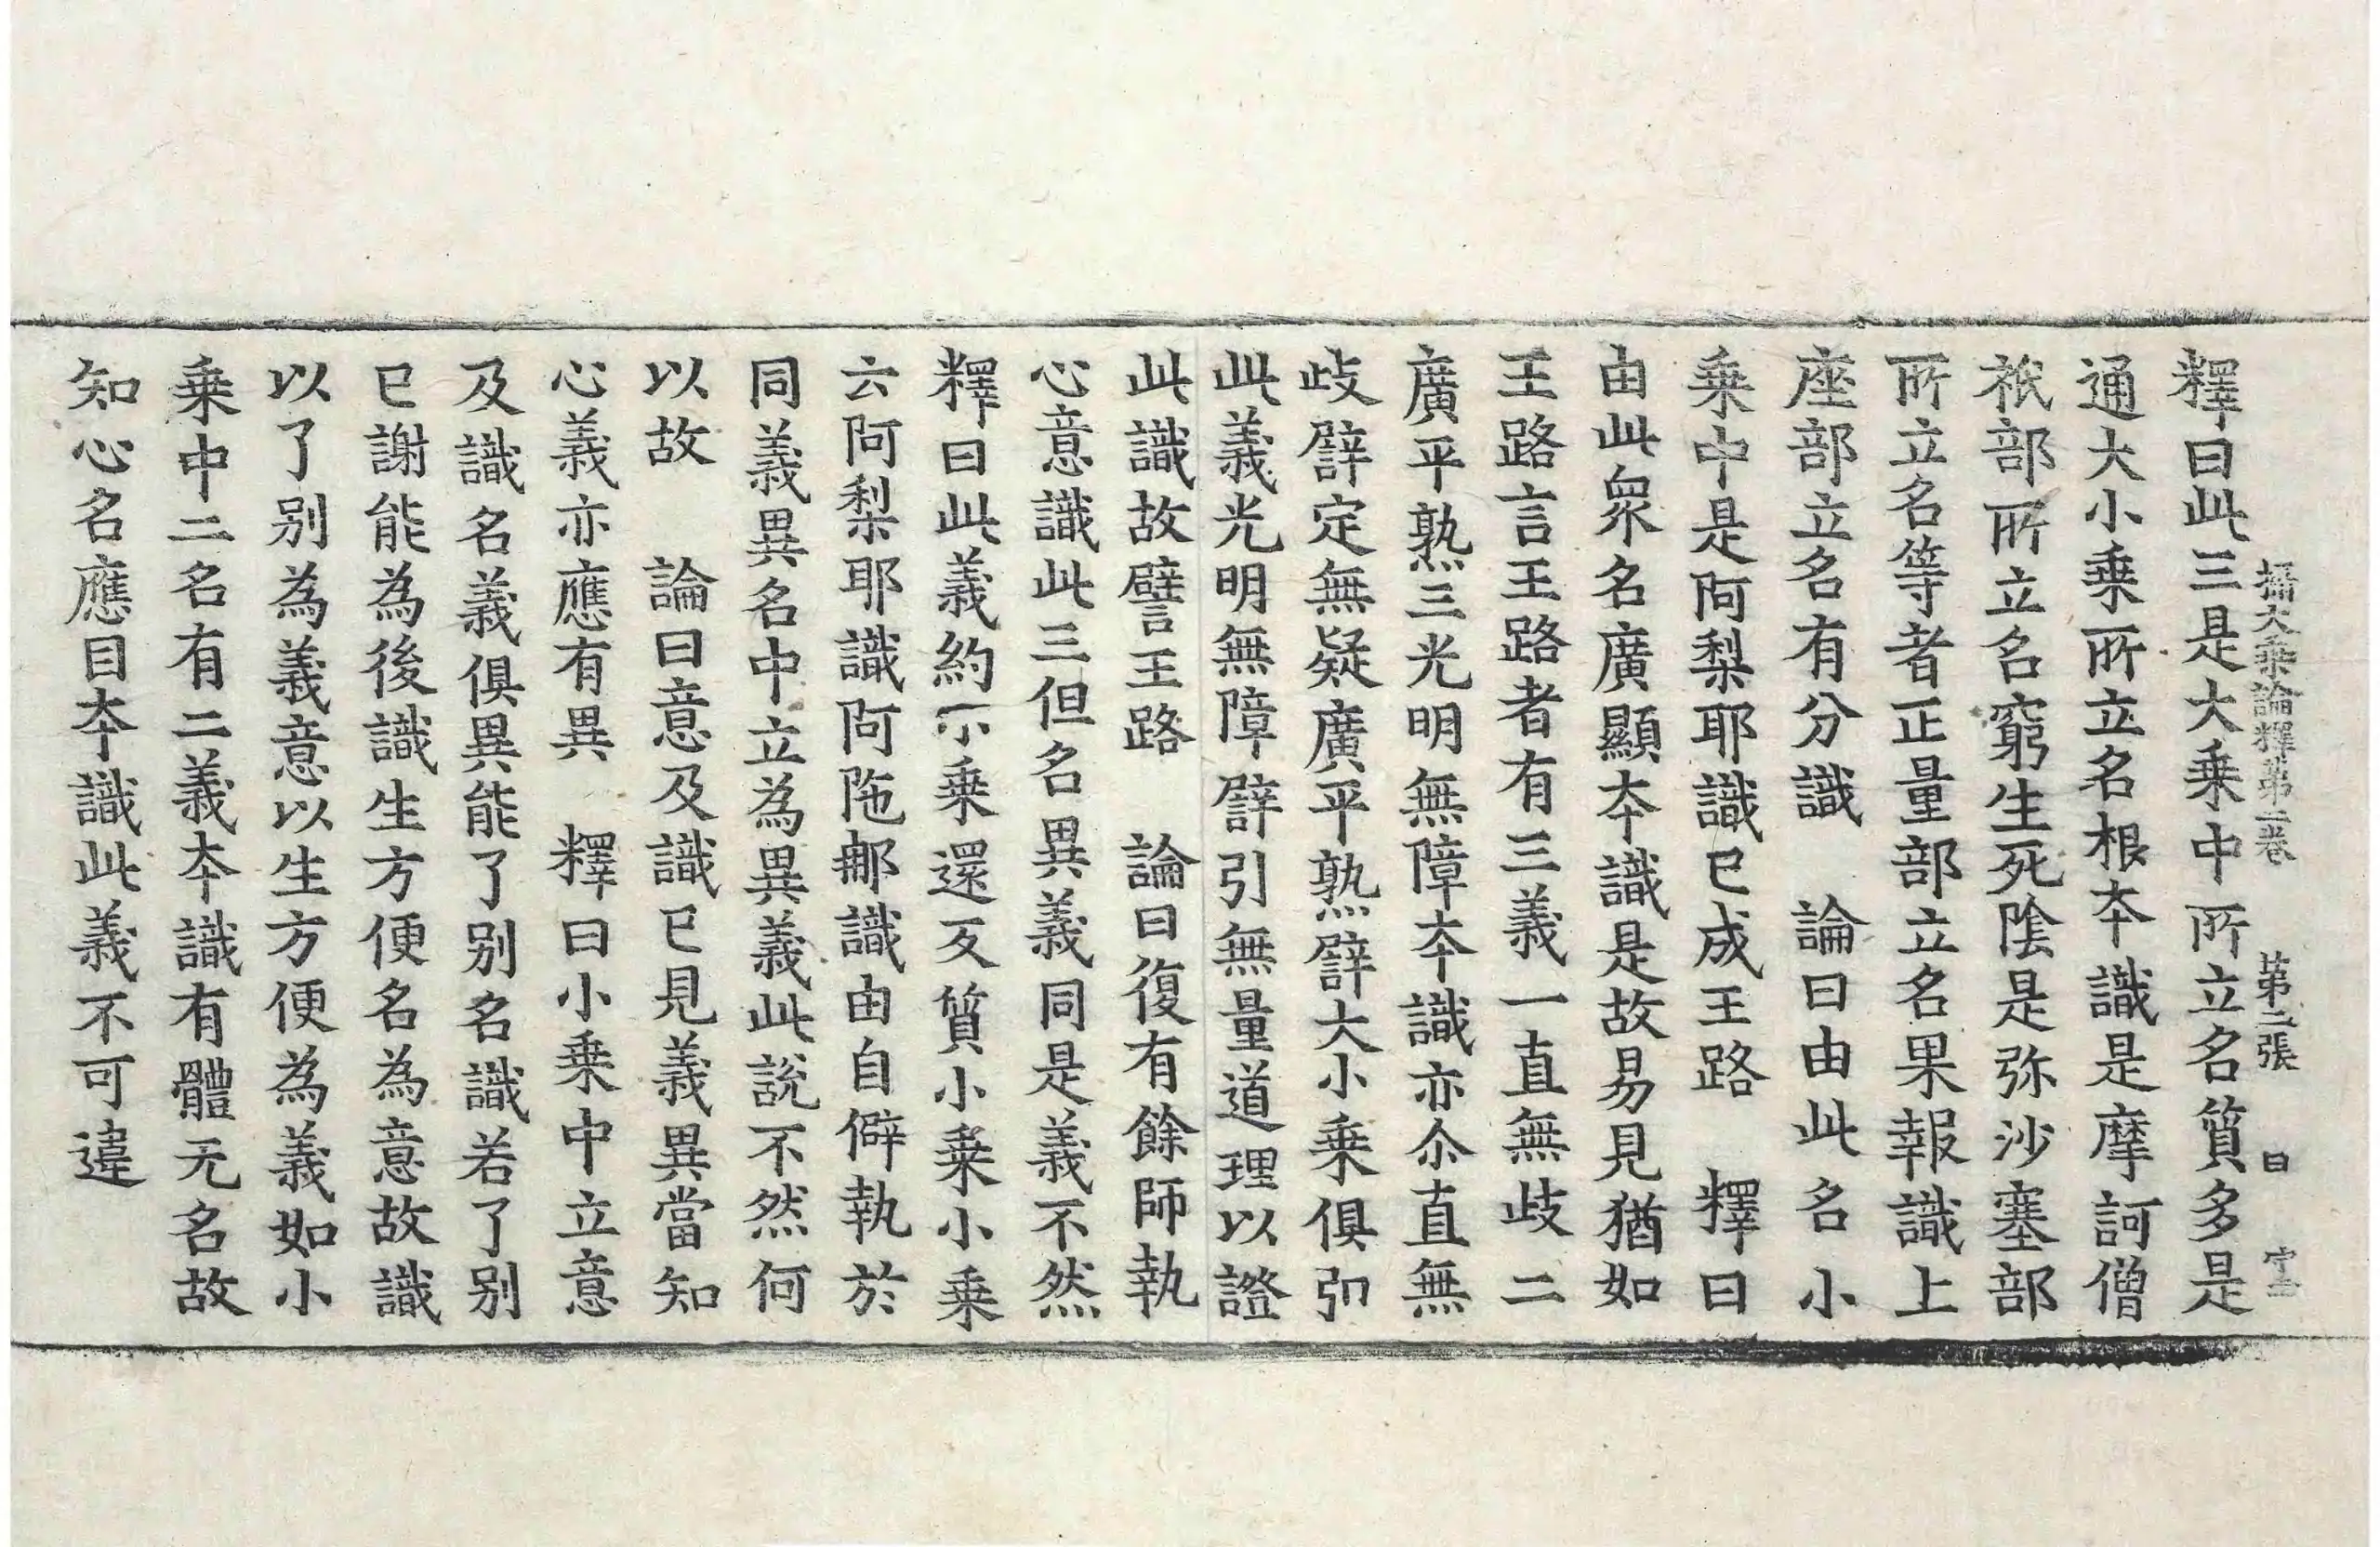 攝大乗論釋第二卷 第二張 曰
釋曰此三是大乗中所立名質多是
通大小乗所立名根夲識是摩訶僧
祇部所立名窮生死陰是弥沙塞部
所立名等者正量部立名果報識上
座部立名有分識 論曰由此名小
乗中是阿梨耶識已成王路 釋曰
由此衆名廣顯夲識是故易見猶如
王路言王路者有三義一直無歧二
廣平熟三光明無障夲識亦尒直無
歧譬定無疑廣平熟譬大小乗俱引
此義光明無障譬引無量道理以證
此識故譬王路 論曰復有餘師執
心意識此三但名異義同是義不然
釋曰此義約小乗還反質小乗小乗
云阿梨耶識阿陁那識由自僻執於
同義異名中立為異義此説不然何
以故 論曰意及識已見義異當知
心義亦應有異 釋曰小乗中立意
及識名義俱異能了别名識若了别
已謝能為後識生方便名為意故識
以了别為義意以生方便為義如小
乗中二名有二義夲識有體无名故
知心名應目夲識此義不可違